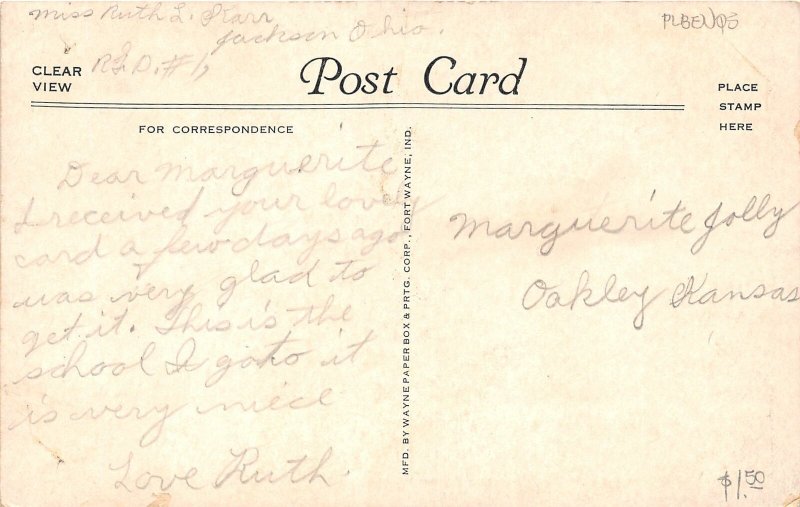 Miss Ruth L. Karr
Jackson Ohio.
R.F.D. #1,
PLBENQS
CLEAR VIEW
Post Card
PLACE STAMP HERE
FOR CORRESPONDENCE
Dear Marguerite
I received your lovely
card a few days ago
was very glad to
get it. This is the
school I go to it
is very niece
Love Ruth.
MFD. BY WAYNE PAPER BOX & PRTG. CORP., FORT WAYNE, IND.
Marguerite Jolly
Oakley Kansas
$1.50